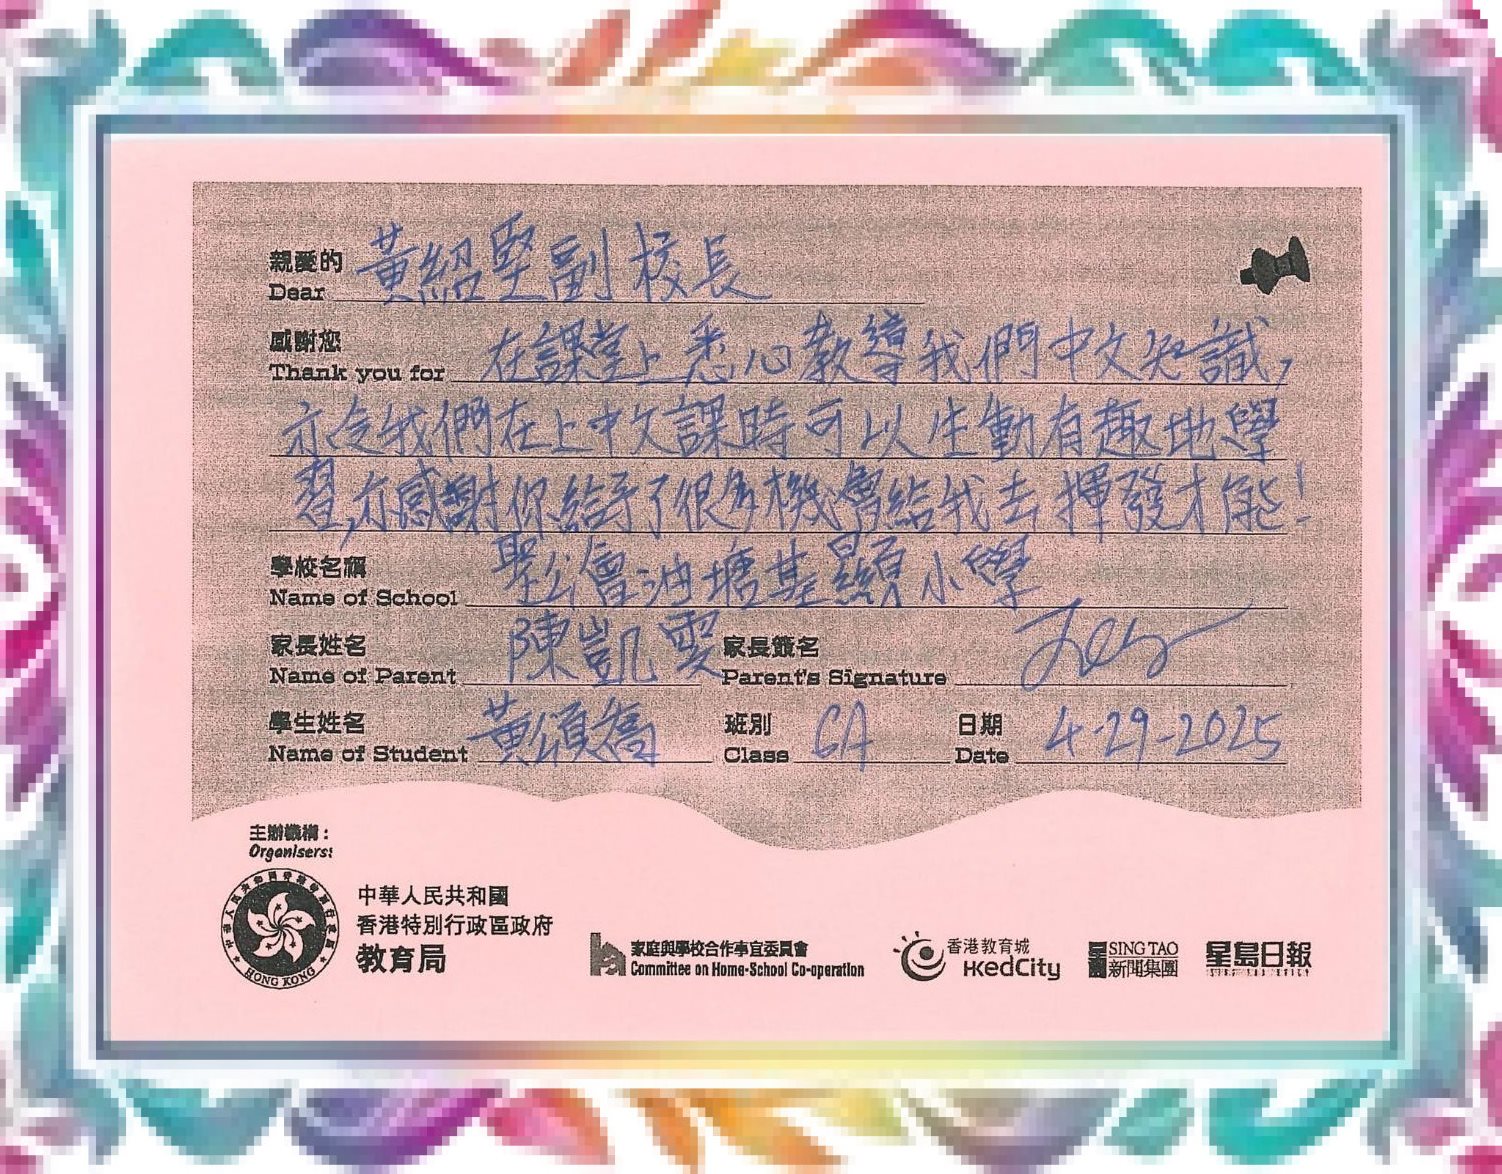 親愛的 黃紹堅副校長
Dear
感謝您 在課堂上悉心教導我們中文知識,
Thank you for
亦令我們在上中文課時可以生動有趣地學
習,亦感謝你給予了很多機會給我去揮發才能!
學校名稱 聖公會油塘基顯小學
Name of School
家長姓名 陳凱雯 家長簽名
Name of Parent Parent's Signature
學生姓名 黃頌喬 班別 6A 日期 4-29-2025
Name of Student Class Date
主辦機構:
Organisers:
中華人民共和國
香港特別行政區政府
教育局
HONG KONG
家庭與學校合作事宜委員會
Committee on Home-School Co-operation
香港教育城
HKedCity
SING TAO
新聞集團
星島日報